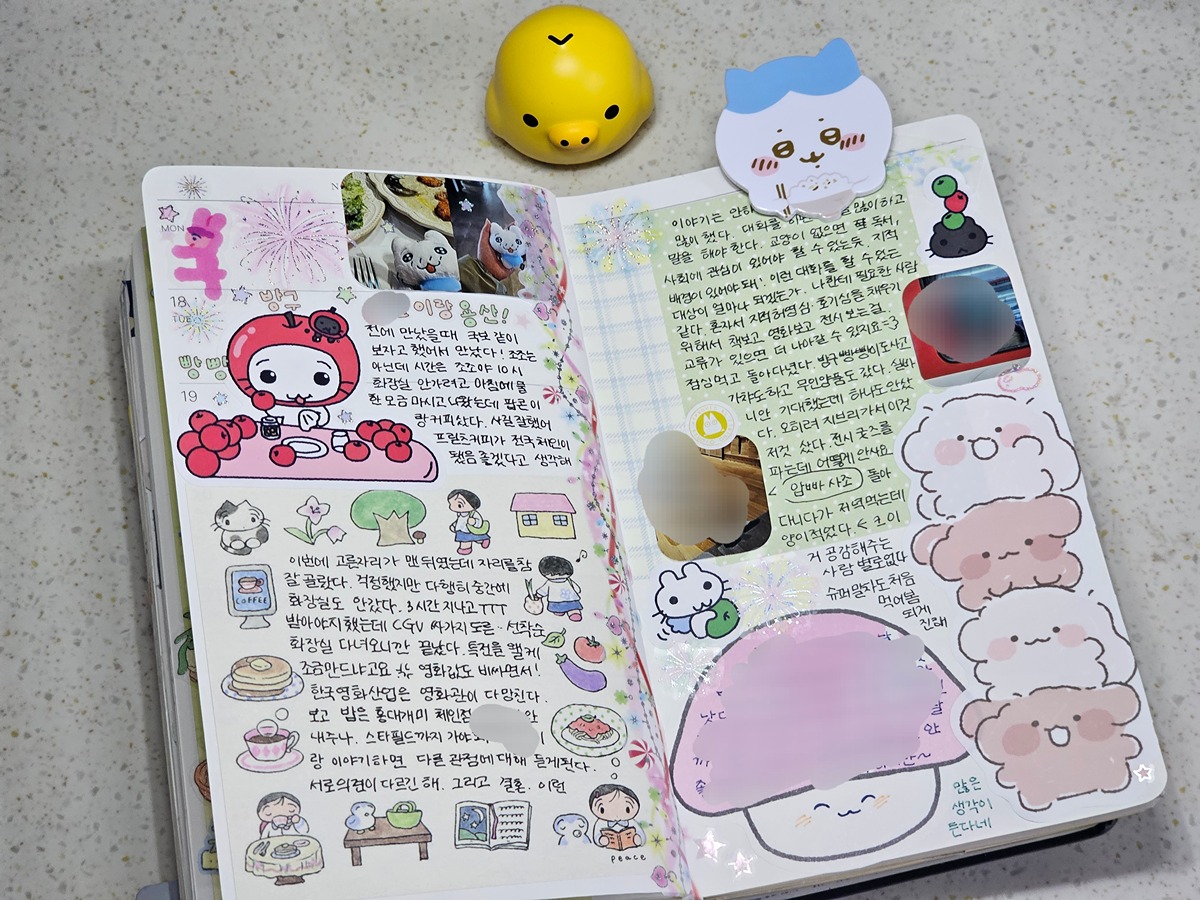 MON
18
TUE
19
방구
이랑 용산!
빵빵
전에 만났을때 국보 같이
보자고 했어서 만났다! 조조는
아닌데 시간은 조조야 10시
화장실 안가려고 아침에 물
한 모금 마시고 나왔는데 팝콘이
랑 커피샀다. 사길 잘했어
프릳츠커피가 전국 체인이
됐음 좋겠다고 생각해
이번에 고른자리가 맨 뒤였는데 자리를 참
잘 골랐다. 걱정했지만 다행히 중간에
화장실도 안갔다. 3시간 지나고 TTT
받아야지 했는데 CGV 싸가지 모른 선착순
화장실 다녀오니깐 끝났다. 특전을 왤케
조금만드냐고요 영화값도 비싸면서!
한국영화산업은 영화관이 다 망친다.
보고 밥은 홍대개미 체인점
내주나. 스타필드까지 가야
랑 이야기하면 다른 관점에 대해 듣게된다.
서로의견이 다르긴 해. 그리고 결혼. 이런
COFFEE
peace
이야기는 많이하고
많이 했다. 대화를
말을 해야 한다. 교양이 없으면 책 독서,
사회에 관심이 있어야 할 수 있는듯, 지적
배경이 있어야 돼. 이런 대화를 할 수 있는
대상이 얼마나 되겠는가. 나한테 필요한 사람
같다. 혼자서 지적허영심, 호기심을 채우기
위해서 책보고 영화보고 전시 보는걸.
교류가 있으면 더 나아갈 수 있지요 :3
점심먹고 돌아다녔다. 방구빵빵이도사고
가챠도하고 무인양품도 갔다.
니안 기대했는데 하나도안샀
다. 오히려 지브리가서 이것
저것 샀다. 전시 굿즈를
파는데 어떻게 안사요
< 압빠 사조 돌아
다니다가 저녁먹는데
양이적었다 <
거 공감해주는
사람 별로없다
슈퍼말차도처음
먹어봄
되게
진해
많은
생각이
든다네